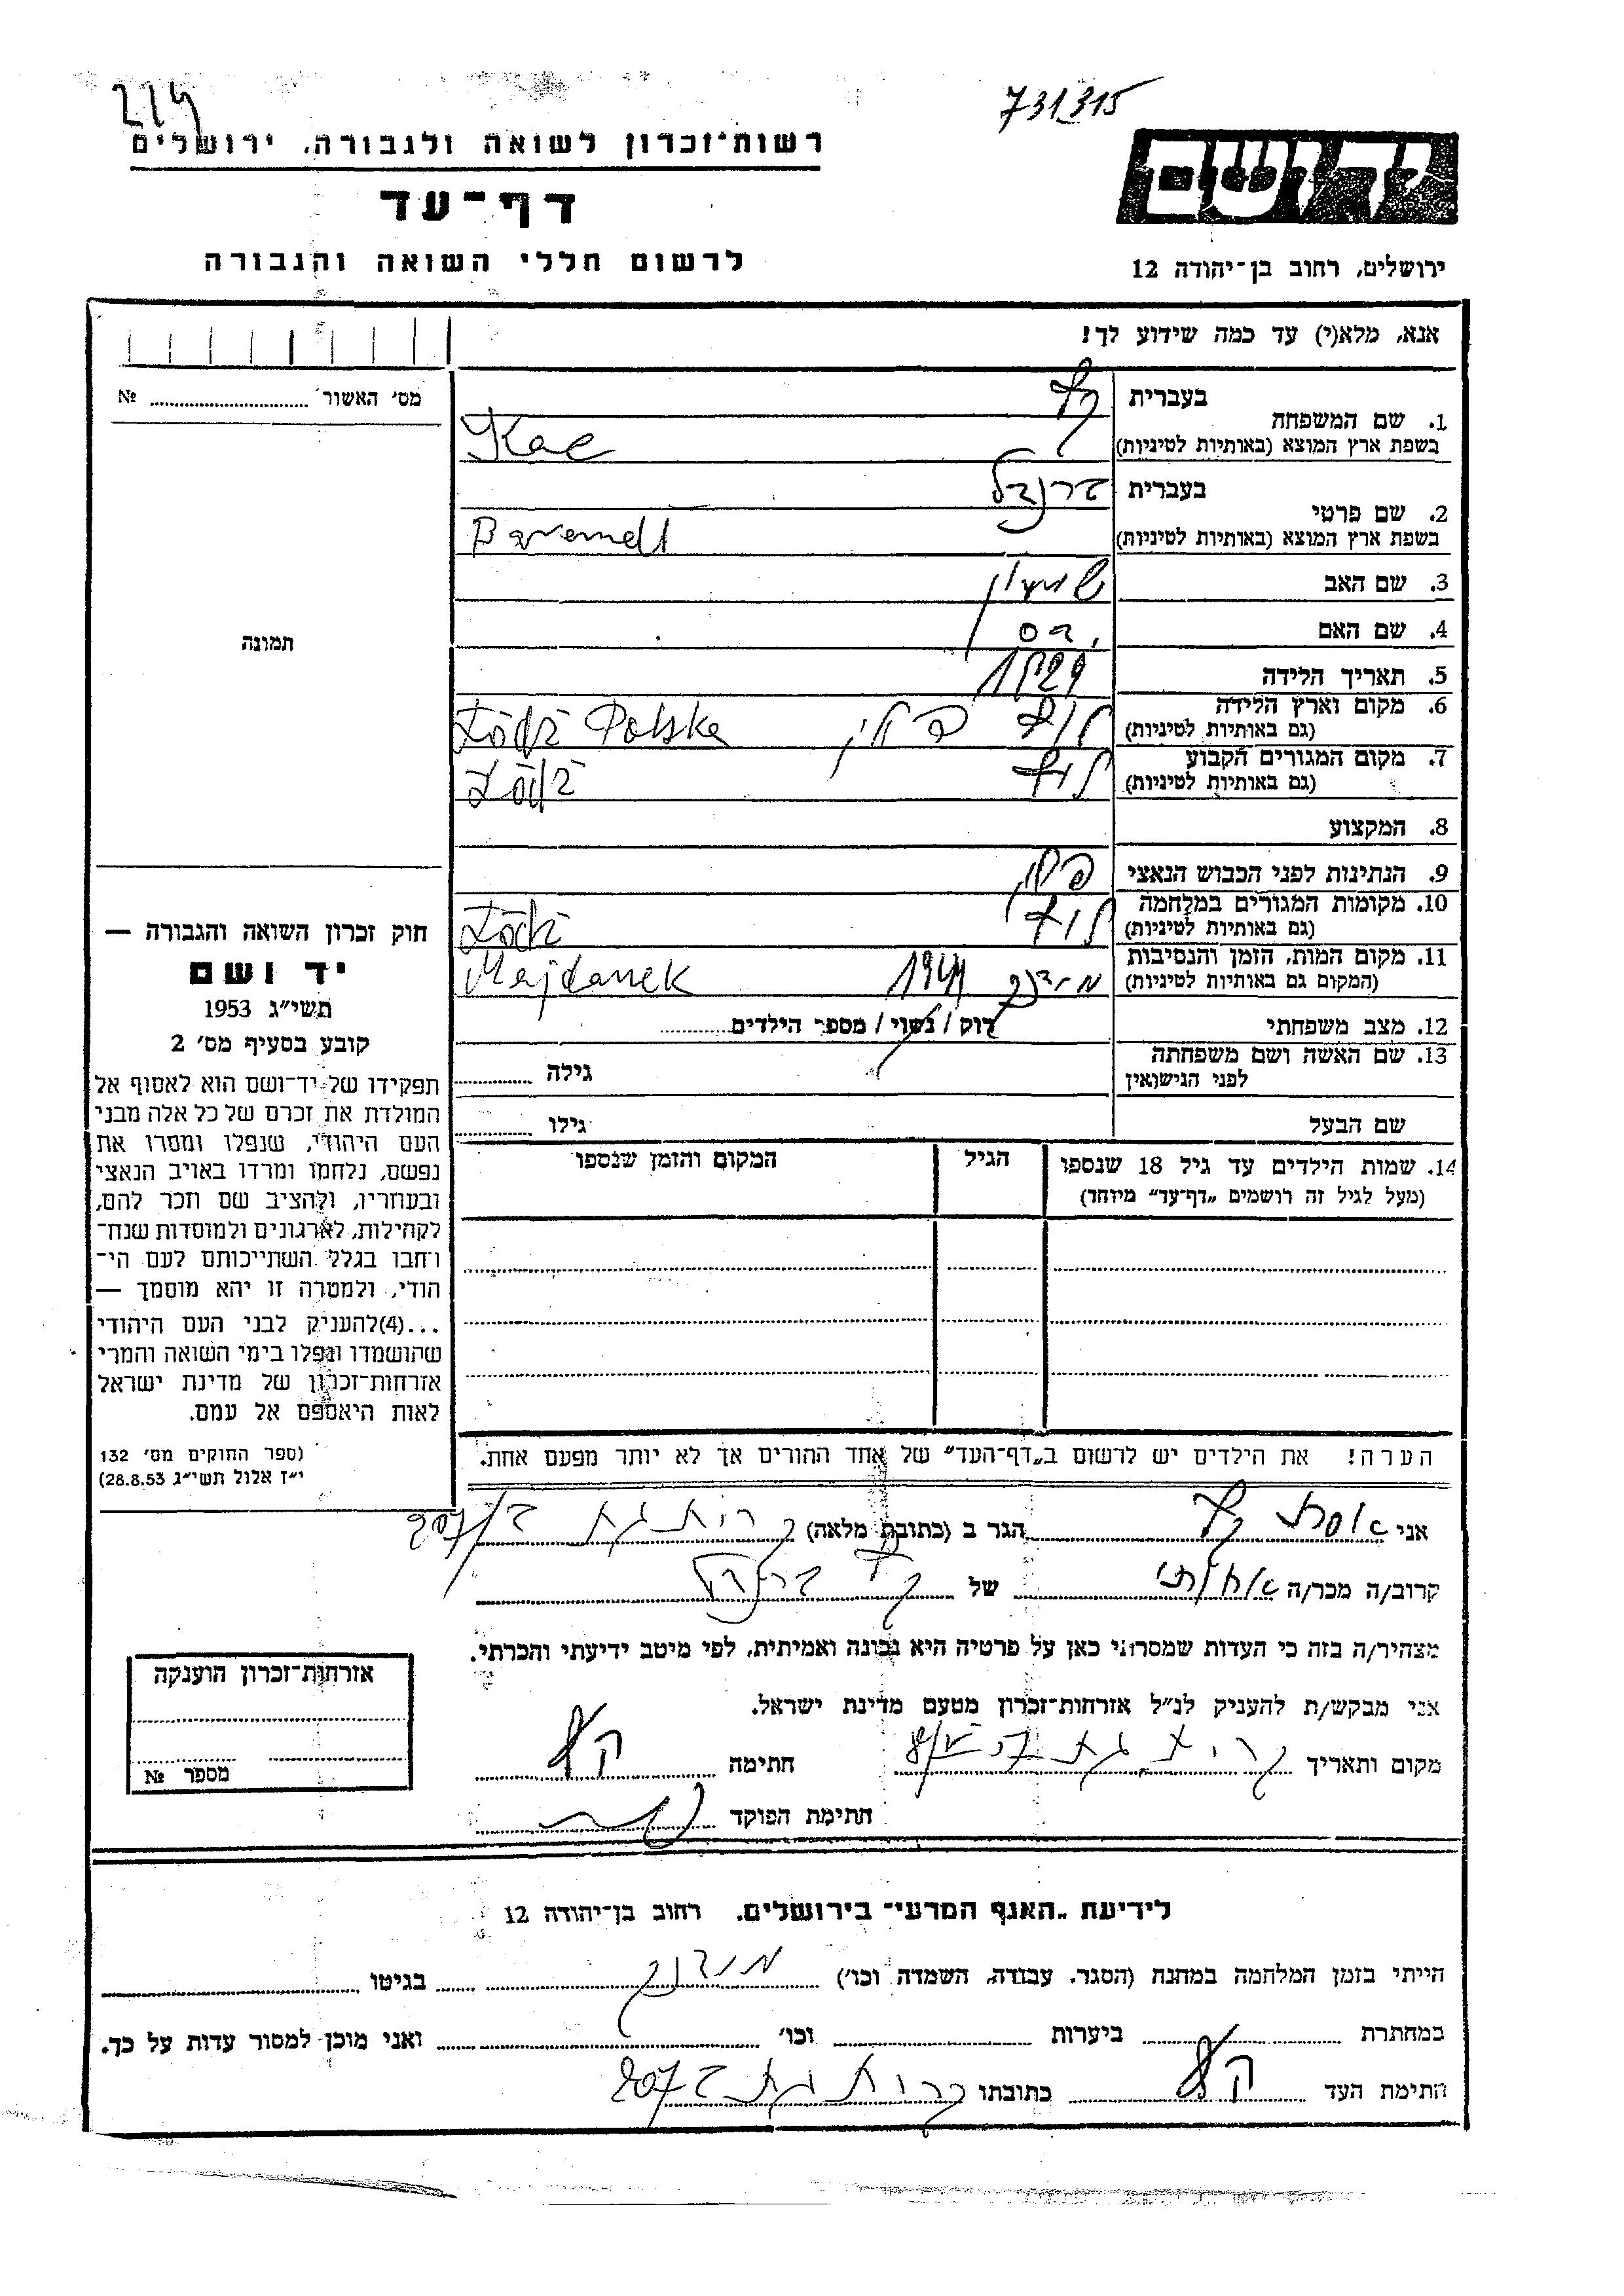 214
731315
רשות־זכרון לשואה ולגבורה, ירושלים
ידושם
דף־עד
לרשום חללי השואה והגבורה
ירושלים, רחוב בן־יהודה 12
אנא, מלא(י) עד כמה שידוע לך!
מס׳ האשור № 
1. שם המשפחה בעברית קץ
בשפת ארץ המוצא (באותיות לטיניות) Kac
2. שם פרטי בעברית
בשפת ארץ המוצא (באותיות לטיניות)
3. שם האב שמעון
4. שם האם
תמונה
5. תאריך הלידה 1929
6. מקום וארץ הלידה לודז פולין Łódź Polska
(גם באותיות לטיניות)
7. מקום המגורים הקבוע לודז Łódź
(גם באותיות לטיניות)
8. המקצוע
9. הנתינות לפני הכבוש הנאצי פולין
10. מקומות המגורים במלחמה לודז Łódź
(גם באותיות לטיניות)
11. מקום המות, הזמן והנסיבות מידנק 1944 Majdanek
(המקום גם באותיות לטיניות)
12. מצב משפחתי רוק / נשוי / מספר הילדים
13. שם האשה ושם משפחתה
לפני הנישואין גילה
שם הבעל גילו
14. שמות הילדים עד גיל 18 שנספו הגיל המקום והזמן שנספו
(מעל לגיל זה רושמים „דף־עד״ מיוחד)
חוק זכרון השואה והגבורה —
יד ושם
תשי״ג 1953
קובע בסעיף מס׳ 2
תפקידו של יד־ושם הוא לאסוף אל
המולדת את זכרם של כל אלה מבני
העם היהודי, שנפלו ומסרו את
נפשם, נלחמו ומרדו באויב הנאצי
ובעוזריו, ולהציב שם וזכר להם,
לקהילות, לארגונים ולמוסדות שנח־
רבו בגלל השתייכותם לעם הי־
הודי, ולמטרה זו יהא מוסמך —
...(4)להעניק לבני העם היהודי
שהושמדו ונפלו בימי השואה והמרי
אזרחות־זכרון של מדינת ישראל
לאות היאספם אל עמם.
(ספר החוקים מס׳ 132
י״ז אלול תשי״ג 28.8.53)
הערה! את הילדים יש לרשום ב„דף־העד״ של אחד ההורים אך לא יותר מפעם אחת.
אני אסתר קץ הגר ב (כתובת מלאה) קרית גת
קרוב/ה מכר/ה אחותי של קץ
מצהיר/ה בזה כי העדות שמסרתי כאן על פרטיה היא נכונה ואמיתית, לפי מיטב ידיעתי והכרתי.
אני מבקש/ת להעניק לנ״ל אזרחות־זכרון מטעם מדינת ישראל.
מקום ותאריך קרית גת חתימה קץ
חתימת הפוקד
אזרחות־זכרון הוענקה
מספר №
לידיעת „האגף המדעי״ בירושלים, רחוב בן־יהודה 12
הייתי בזמן המלחמה במחנה (הסגר, עבודה, השמדה וכו׳) מידנק בגיטו
במחתרת ביערות וכו׳ ואני מוכן למסור עדות על כך.
חתימת העד קץ כתובתו קרית גת